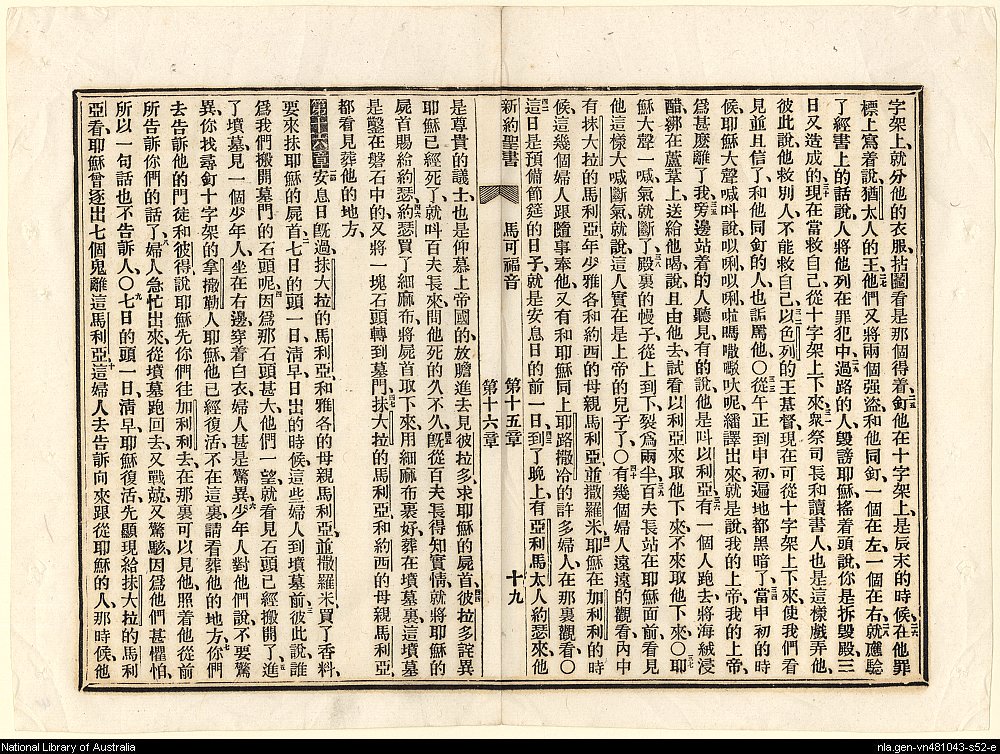 字架上、就分他的衣服、拈鬮看是那個得着、釘他在十字架上、是辰末的時候、在他罪
標上寫着說、猶太人的王、他們又將兩個强盜和他同釘、一個在左、一個在右、就應驗
了經書上的話說、人將他列在罪犯中、過路的人毀謗耶穌、搖着頭說、你是拆毀殿三
日又造成的、現在當救自己、從十字架上下來、衆祭司長和讀書人、也是這樣戲弄他、
彼此說、他救別人、不能救自己、以色列的王基督、現在可從十字架上下來、使我們看
見並且信了、和他同釘的人、也詬罵他、〇從午正到申初、遍地都黑暗了、當申初的時
候、耶穌大聲喊呌說、以唎以唎啦嗎撒𠸄呔呢、繙譯出來、就是說、我的上帝、我的上帝、
爲甚麼離了我、旁邊站着的人聽見、有的說、他是呌以利亞、有一個人跑去、將海絨浸
醋、綁在蘆葦上、送給他喝、說、且由他去、試看以利亞來取他下來不來取他下來、〇耶
穌大聲一喊、氣就斷了、殿裏的幔子、從上到下裂爲兩半、百夫長站在耶穌面前、看見
他這樣大喊斷氣、就說、這人實在是上帝的兒子了、〇有幾個婦人遠遠的觀看、內中
有抹大拉的馬利亞、年少雅各和約西的母親馬利亞、並撒羅米、耶穌在加利利的時
候、這幾個婦人跟隨事奉他、又有和耶穌同上耶路撒冷的許多婦人、在那裏觀看、〇
這日是預備節筵的日子、就是安息日的前一日、到了晚上、有亞利馬太人約瑟來、他
新約聖書 馬可福音 第十五章 第十六章 十九
是尊貴的議士、也是仰慕上帝國的、放膽進去見彼拉多、求耶穌的屍首、彼拉多詫異
耶穌已經死了、就呌百夫長來、問他死的久不久、旣從百夫長得知實情、就將耶穌的
屍首賜給約瑟、約瑟買了細麻布、將屍首取下來、用細麻布裹好、葬在墳墓裏、這墳墓
是鑿在磐石中的、又將一塊石頭轉到墓門、抹大拉的馬利亞、和約西的母親馬利亞、
都看見葬他的地方、
第十六章安息日旣過、抹大拉的馬利亞、和雅各的母親馬利亞、並撒羅米、買了香料、
要來抹耶穌的屍首、七日的頭一日、淸早日出的時候、這些婦人到墳墓前、彼此說、誰
爲我們搬開墓門的石頭呢、因爲那石頭甚大、他們一望、就看見石頭已經搬開了、進
了墳墓、見一個少年人、坐在右邊、穿着白衣、婦人甚是驚異、少年人對他們說、不要驚
異、你找尋釘十字架的拿撒勒人耶穌、他已經復活、不在這裏、請看葬他的地方、你們
去告訴他的門徒和彼得、說、耶穌先你們往加利利去、在那裏可以見他、照着他從前
所告訴你們的話了、婦人急忙出來、從墳墓跑回去、又戰兢又驚駭、因爲他們甚懼怕、
所以一句話也不告訴人、〇七日的頭一日、淸早耶穌復活、先顯現給抹大拉的馬利
亞看、耶穌曾逐出七個鬼離這馬利亞、這婦人去告訴向來跟從耶穌的人、那時候他
National Library of Australia
nla.gen-vn481043-s52-e